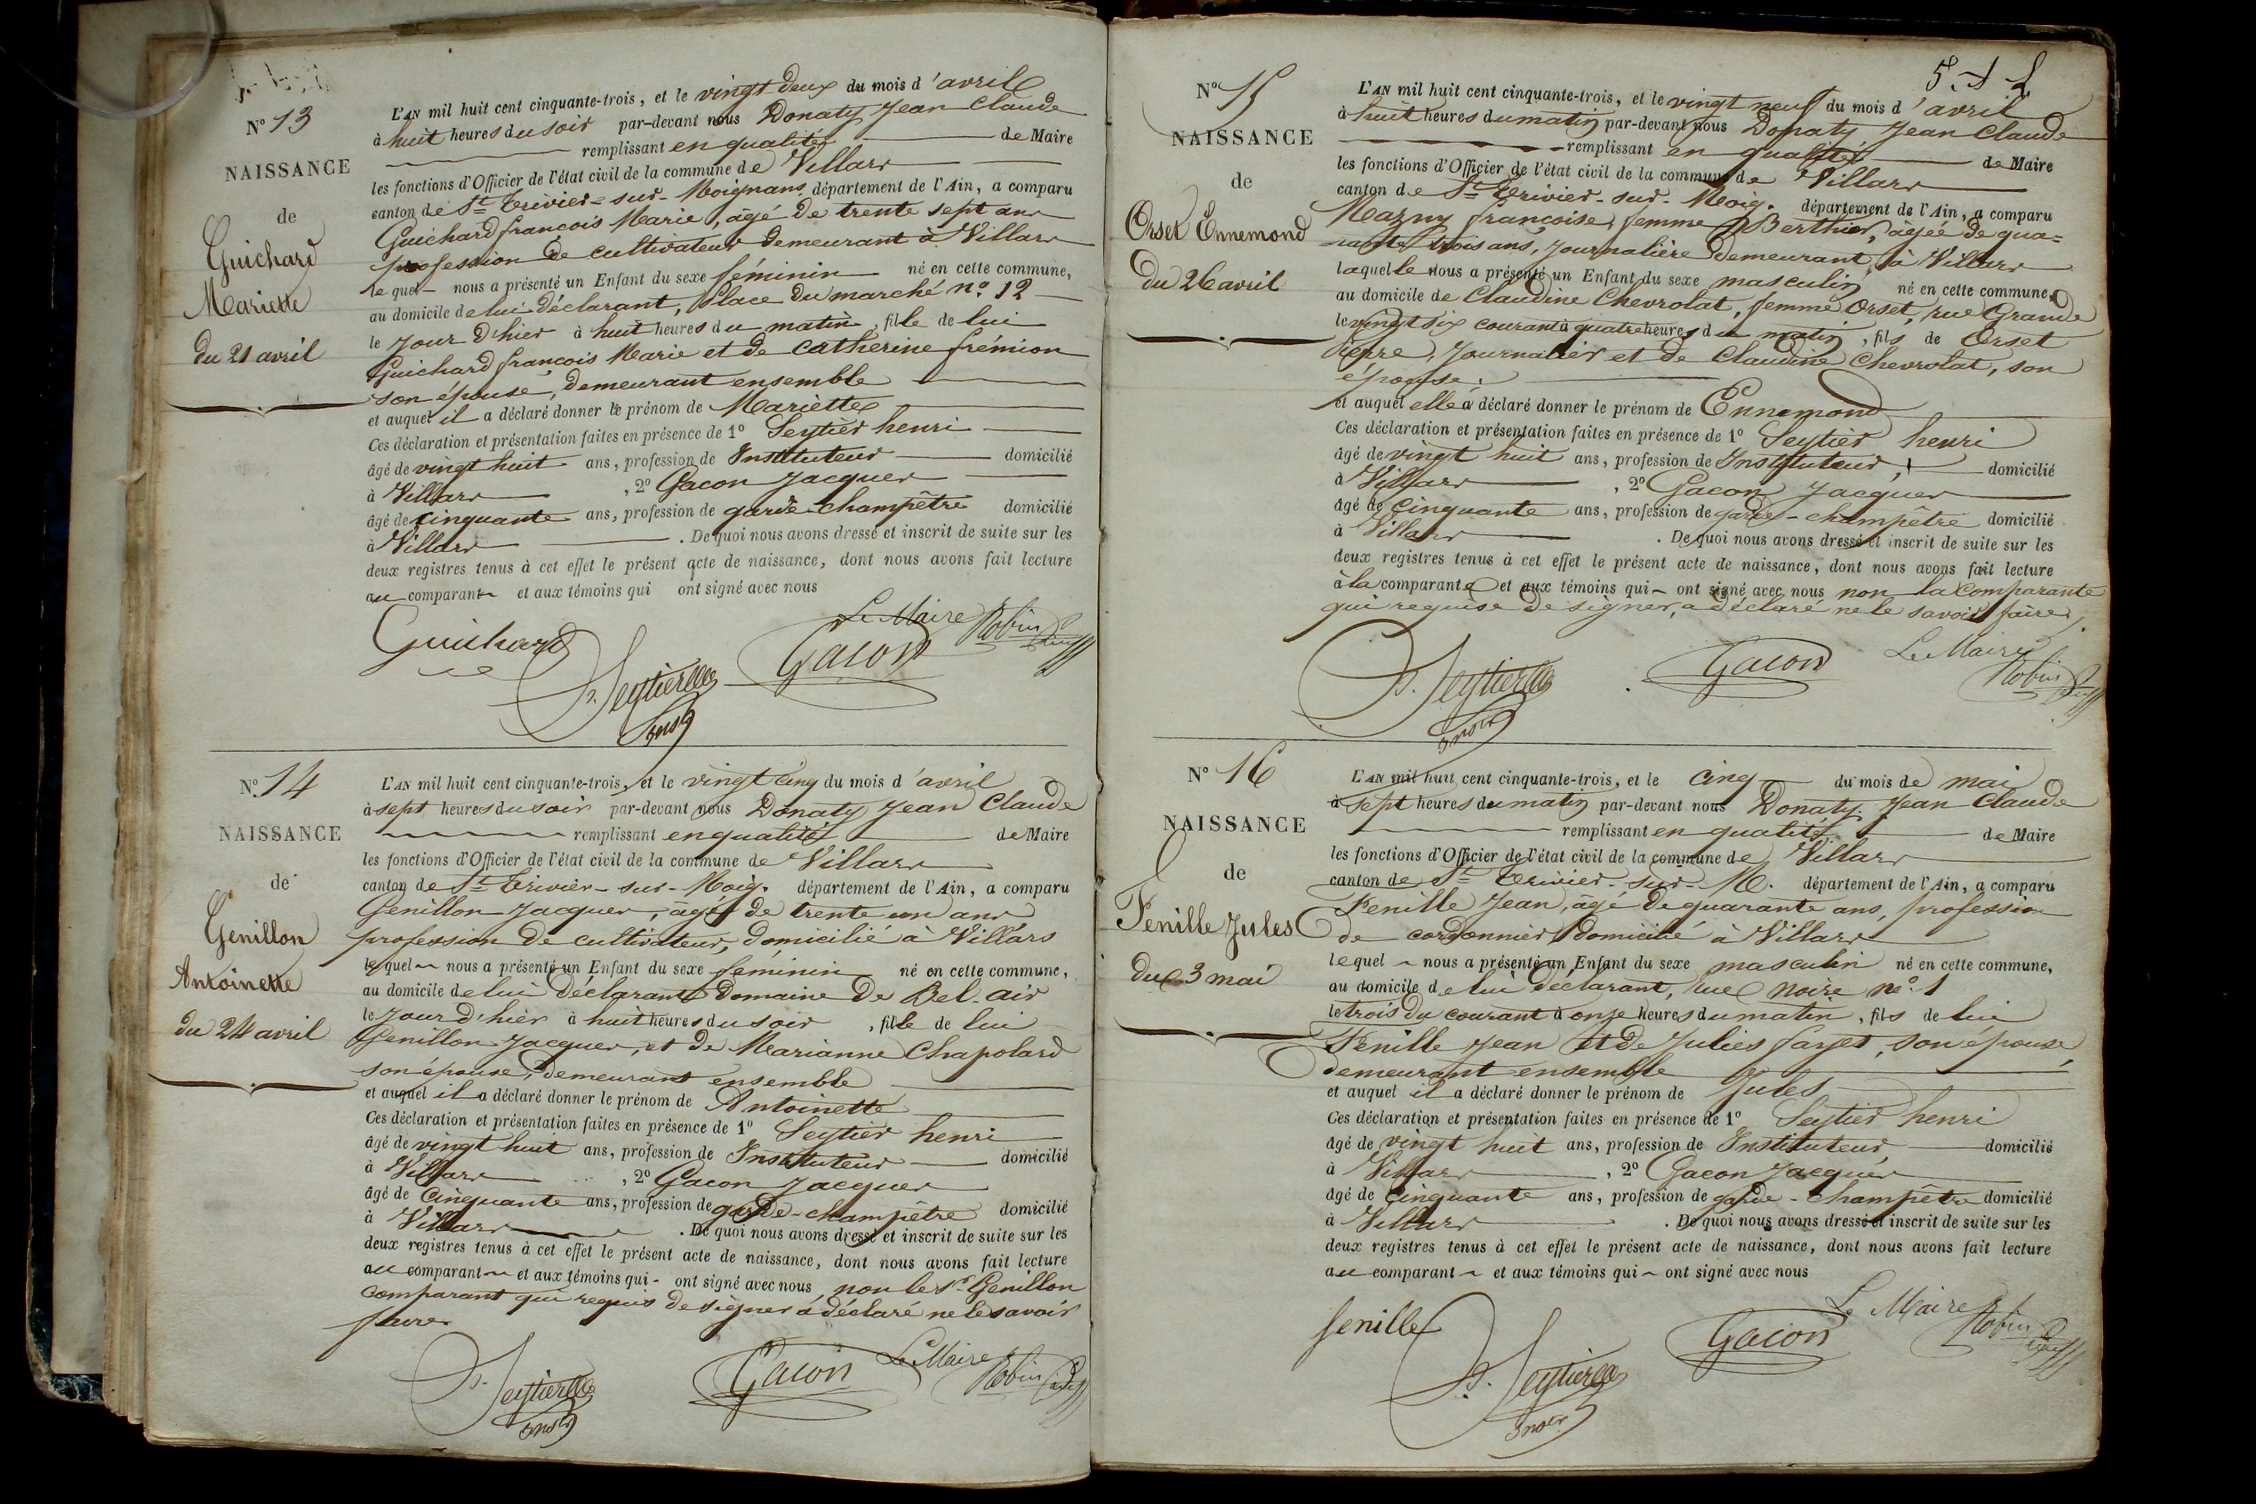 N° 13
NAISSANCE
de
Guichard
Mariette
du 21 avril
L'AN mil huit cent cinquante-trois, et le vingt deux du mois d'avril
à huit heures du soir par-devant nous Donaty Jean Claude
remplissant en qualité de Maire
les fonctions d'Officier de l'état civil de la commune de Villars
canton de St Trivier-sur-Moignans, département de l'Ain, a comparu
Guichard françois Marie, âgé de trente sept ans
profession de cultivateur demeurant à Villars
le quel nous a présenté un Enfant du sexe féminin né en cette commune,
au domicile de lui déclarant, Place du marché n° 12
le jour d'hier à huit heures du matin, fille de lui
Guichard françois Marie et de Catherine frémion
son épouse, demeurant ensemble
et auquel il a déclaré donner le prénom de Mariette
Ces déclaration et présentation faites en présence de 1° Seytier henri
âgé de vingt huit ans, profession de Instituteur domicilié
à Villars, 2° Gacon Jacques
âgé de cinquante ans, profession de garde-champêtre domicilié
à Villars. De quoi nous avons dressé et inscrit de suite sur les
deux registres tenus à cet effet le présent acte de naissance, dont nous avons fait lecture
au comparant et aux témoins qui ont signé avec nous
Le Maire
Guichard
Seytier
Gacon
N° 14
NAISSANCE
de
Genillon
Antoinette
du 24 avril
L'AN mil huit cent cinquante-trois, et le vingt cinq du mois d'avril
à sept heures du soir par-devant nous Donaty Jean Claude
remplissant en qualité de Maire
les fonctions d'Officier de l'état civil de la commune de Villars
canton de St Trivier-sur-Moig. département de l'Ain, a comparu
Genillon Jacques, âgé de trente un ans
profession de cultivateur, domicilié à Villars
le quel nous a présenté un Enfant du sexe féminin né en cette commune,
au domicile de lui déclarant Domaine de Bel-air
le jour d'hier à huit heures du soir, fille de lui
Genillon Jacques, et de Marianne Chapolard
son épouse, demeurant ensemble
et auquel il a déclaré donner le prénom de Antoinette
Ces déclaration et présentation faites en présence de 1° Seytier henri
âgé de vingt huit ans, profession de Instituteur domicilié
à Villars, 2° Gacon Jacques
âgé de cinquante ans, profession de garde-champêtre domicilié
à Villars. De quoi nous avons dressé et inscrit de suite sur les
deux registres tenus à cet effet le présent acte de naissance, dont nous avons fait lecture
au comparant et aux témoins qui ont signé avec nous non le sr Genillon
comparant qui requis de signer a déclaré ne le savoir
faire
Le Maire
Seytier
Gacon
N° 15
NAISSANCE
de
Orset Ennemond
du 26 avril
L'AN mil huit cent cinquante-trois, et le vingt neuf du mois d'avril
à huit heures du matin par-devant nous Donaty Jean Claude
remplissant en qualité de Maire
les fonctions d'Officier de l'état civil de la commune de Villars
canton de St Trivier-sur-Moig. département de l'Ain, a comparu
Mazny françoise, femme Berthier, âgée de qua=
rante trois ans, journalière demeurant, à Villars
laquelle nous a présenté un Enfant du sexe masculin né en cette commune,
au domicile de Claudine Chevrolat, femme Orset, rue Grande
le vingt six courant à quatre heures du matin, fils de Orset
Pierre, journalier et de Claudine Chevrolat, son
épouse.
et auquel elle a déclaré donner le prénom de Ennemond
Ces déclaration et présentation faites en présence de 1° Seytier henri
âgé de vingt huit ans, profession de Instituteur, domicilié
à Villars, 2° Gacon Jacques
âgé de cinquante ans, profession de garde-champêtre domicilié
à Villars. De quoi nous avons dressé et inscrit de suite sur les
deux registres tenus à cet effet le présent acte de naissance, dont nous avons fait lecture
à la comparante et aux témoins qui ont signé avec nous non la comparante
qui requise de signer, a déclaré ne le savoir faire
Le Maire
Seytier
Gacon
N° 16
NAISSANCE
de
Fenille Jules
du 3 mai
L'AN mil huit cent cinquante-trois, et le cinq du mois de mai
à sept heures du matin par-devant nous Donaty Jean Claude
remplissant en qualité de Maire
les fonctions d'Officier de l'état civil de la commune de Villars
canton de St Trivier-sur-M. département de l'Ain, a comparu
Fenille Jean, âgé de quarante ans, profession
de cordonnier domicilié à Villars
lequel nous a présenté un Enfant du sexe masculin né en cette commune,
au domicile de lui déclarant, rue noire n° 1
le trois du courant à onze heures du matin, fils de lui
Fenille Jean et de Julies farget, son épouse
demeurant ensemble
et auquel il a déclaré donner le prénom de Jules
Ces déclaration et présentation faites en présence de 1° Seytier henri
âgé de vingt huit ans, profession de Instituteur, domicilié
à Villars, 2° Gacon Jacques
âgé de cinquante ans, profession de garde-champêtre domicilié
à Villars. De quoi nous avons dressé et inscrit de suite sur les
deux registres tenus à cet effet le présent acte de naissance, dont nous avons fait lecture
au comparant et aux témoins qui ont signé avec nous
Le Maire
fenille
Seytier
Gacon